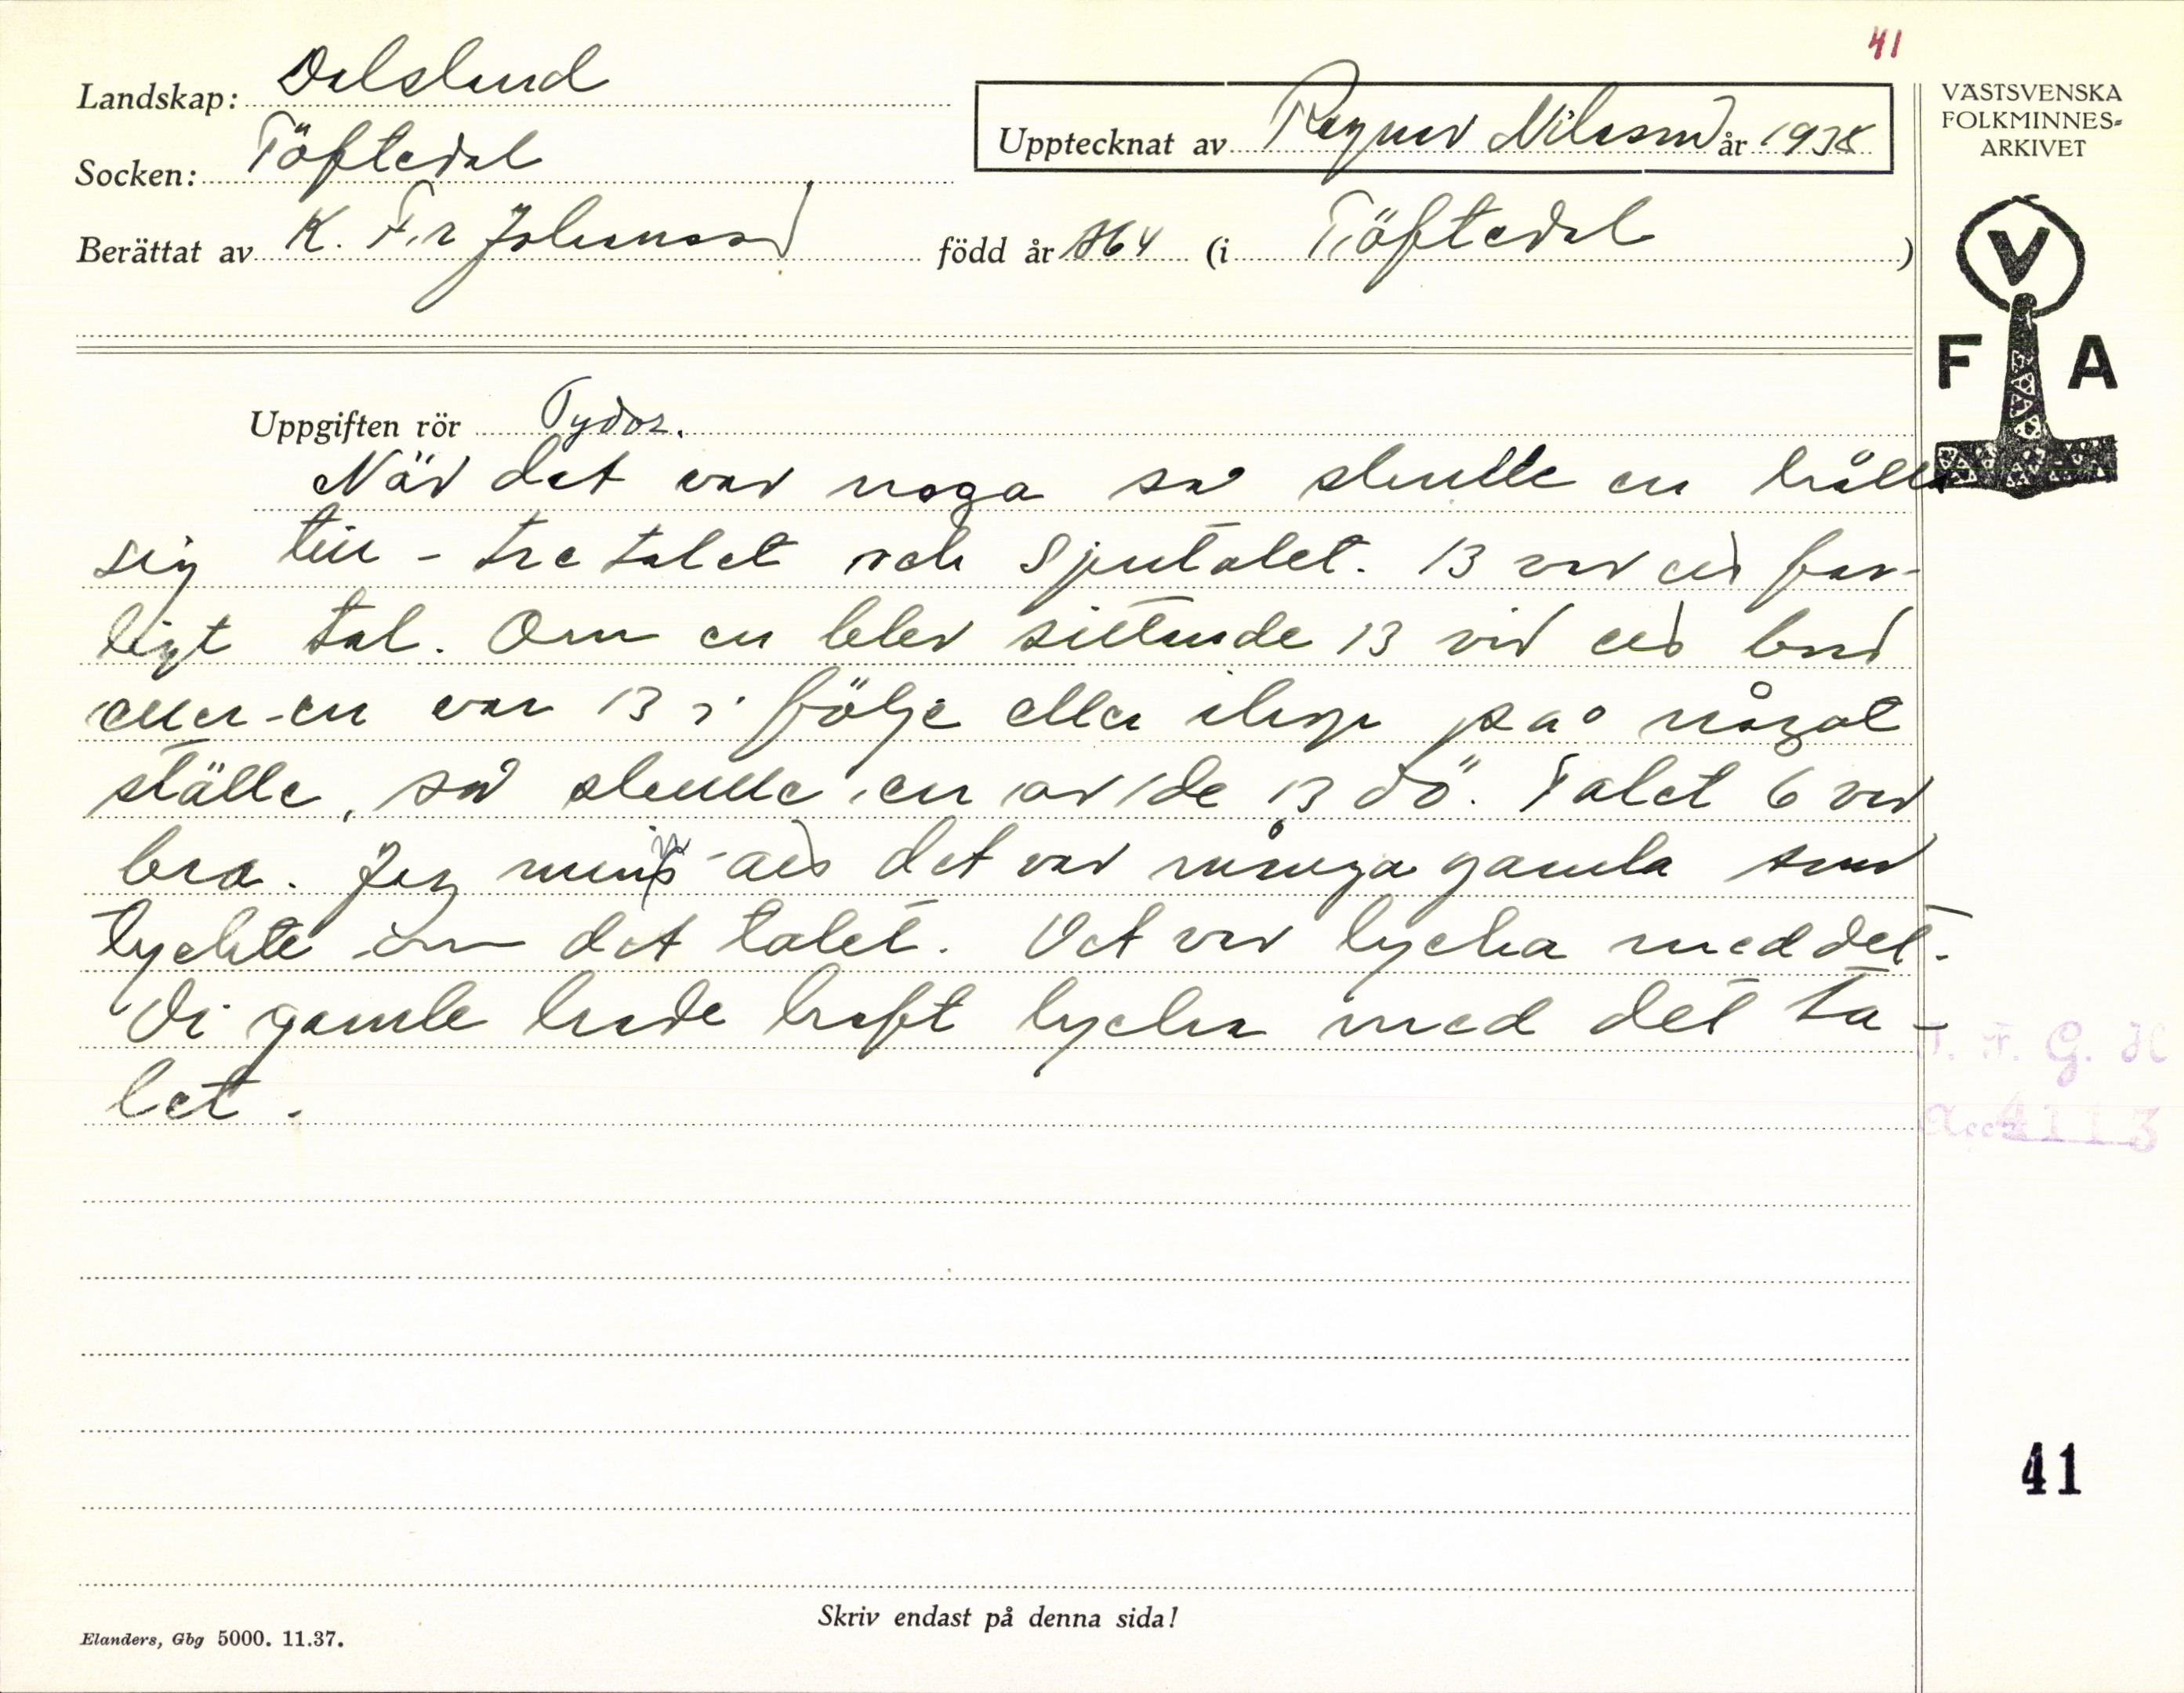 41
Landskap: Dalsland
Upptecknat av Ragnar Nilsson år 1938
VÄSTSVENSKA
FOLKMINNES-
ARKIVET
Socken: Töftedal
Berättat av K. Fr Johansson född år 1864 (i Töftedal)
V
F A
Uppgiften rör Tydor.
När det var noga så skulle en hålla
sig till - tre talet och sjutalet. 13 var ett far-
ligt tal. Om en blev sittande 13 vid ett bord
eller - en var 13 i följe eller ihop på något
ställe, så skulle en av de 13 dö. Talet 6 var
bra. Jag minns - att det var många gamla som
tyckte om det talet. Det var lycka med det.
Di gamle hade haft lycka med det ta-
let.
I. F. G. H
Acc 4113
41
Skriv endast på denna sida!
Elanders, Gbg 5000. 11.37.